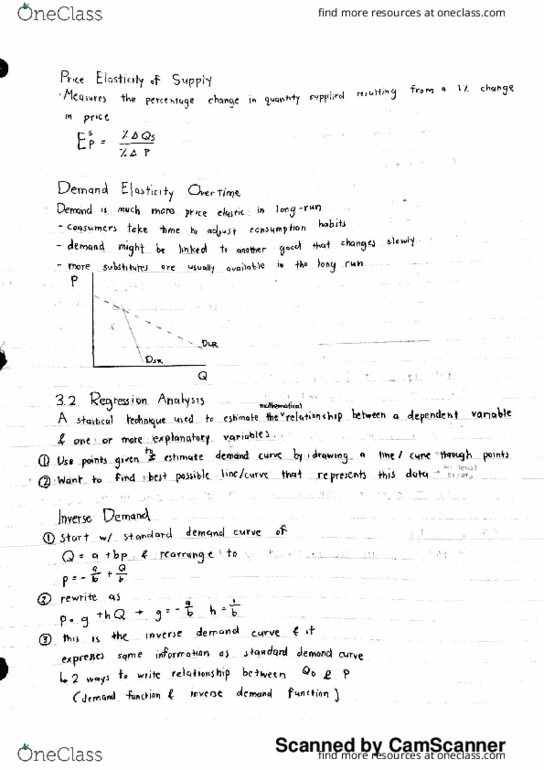 OneClass
find more resources at oneclass.com
Price Elasticity of Supply
· Measures the percentage change in quantity supplied resulting from a 1% change
in price
E^s_p = %ΔQs / %ΔP
Demand Elasticity Over Time
Demand is much more price elastic in long-run
- consumers take time to adjust consumption habits
- demand might be linked to another good that changes slowly
- more substitutes are usually available in the long run
P
DLR
DSR
Q
3.2 Regression Analysis
mathematical
A stastical technique used to estimate the relationship between a dependent variable
& one or more explanatory variables.
① Use points given to estimate demand curve by drawing a line/ curve through points
② Want to find best possible line/curve that represents this data w/ least
errors
Inverse Demand
① Start w/ standard demand curve of
Q = a + bp & rearrange to
p = - a/b + Q/b
② rewrite as
p = g + hQ → g = - a/b h = 1/b
③ this is the inverse demand curve & it
expresses same information as standard demand curve
↳ 2 ways to write relationship between QD & P
(demand function & inverse demand function)
Scanned by CamScanner
OneClass
find more resources at oneclass.com